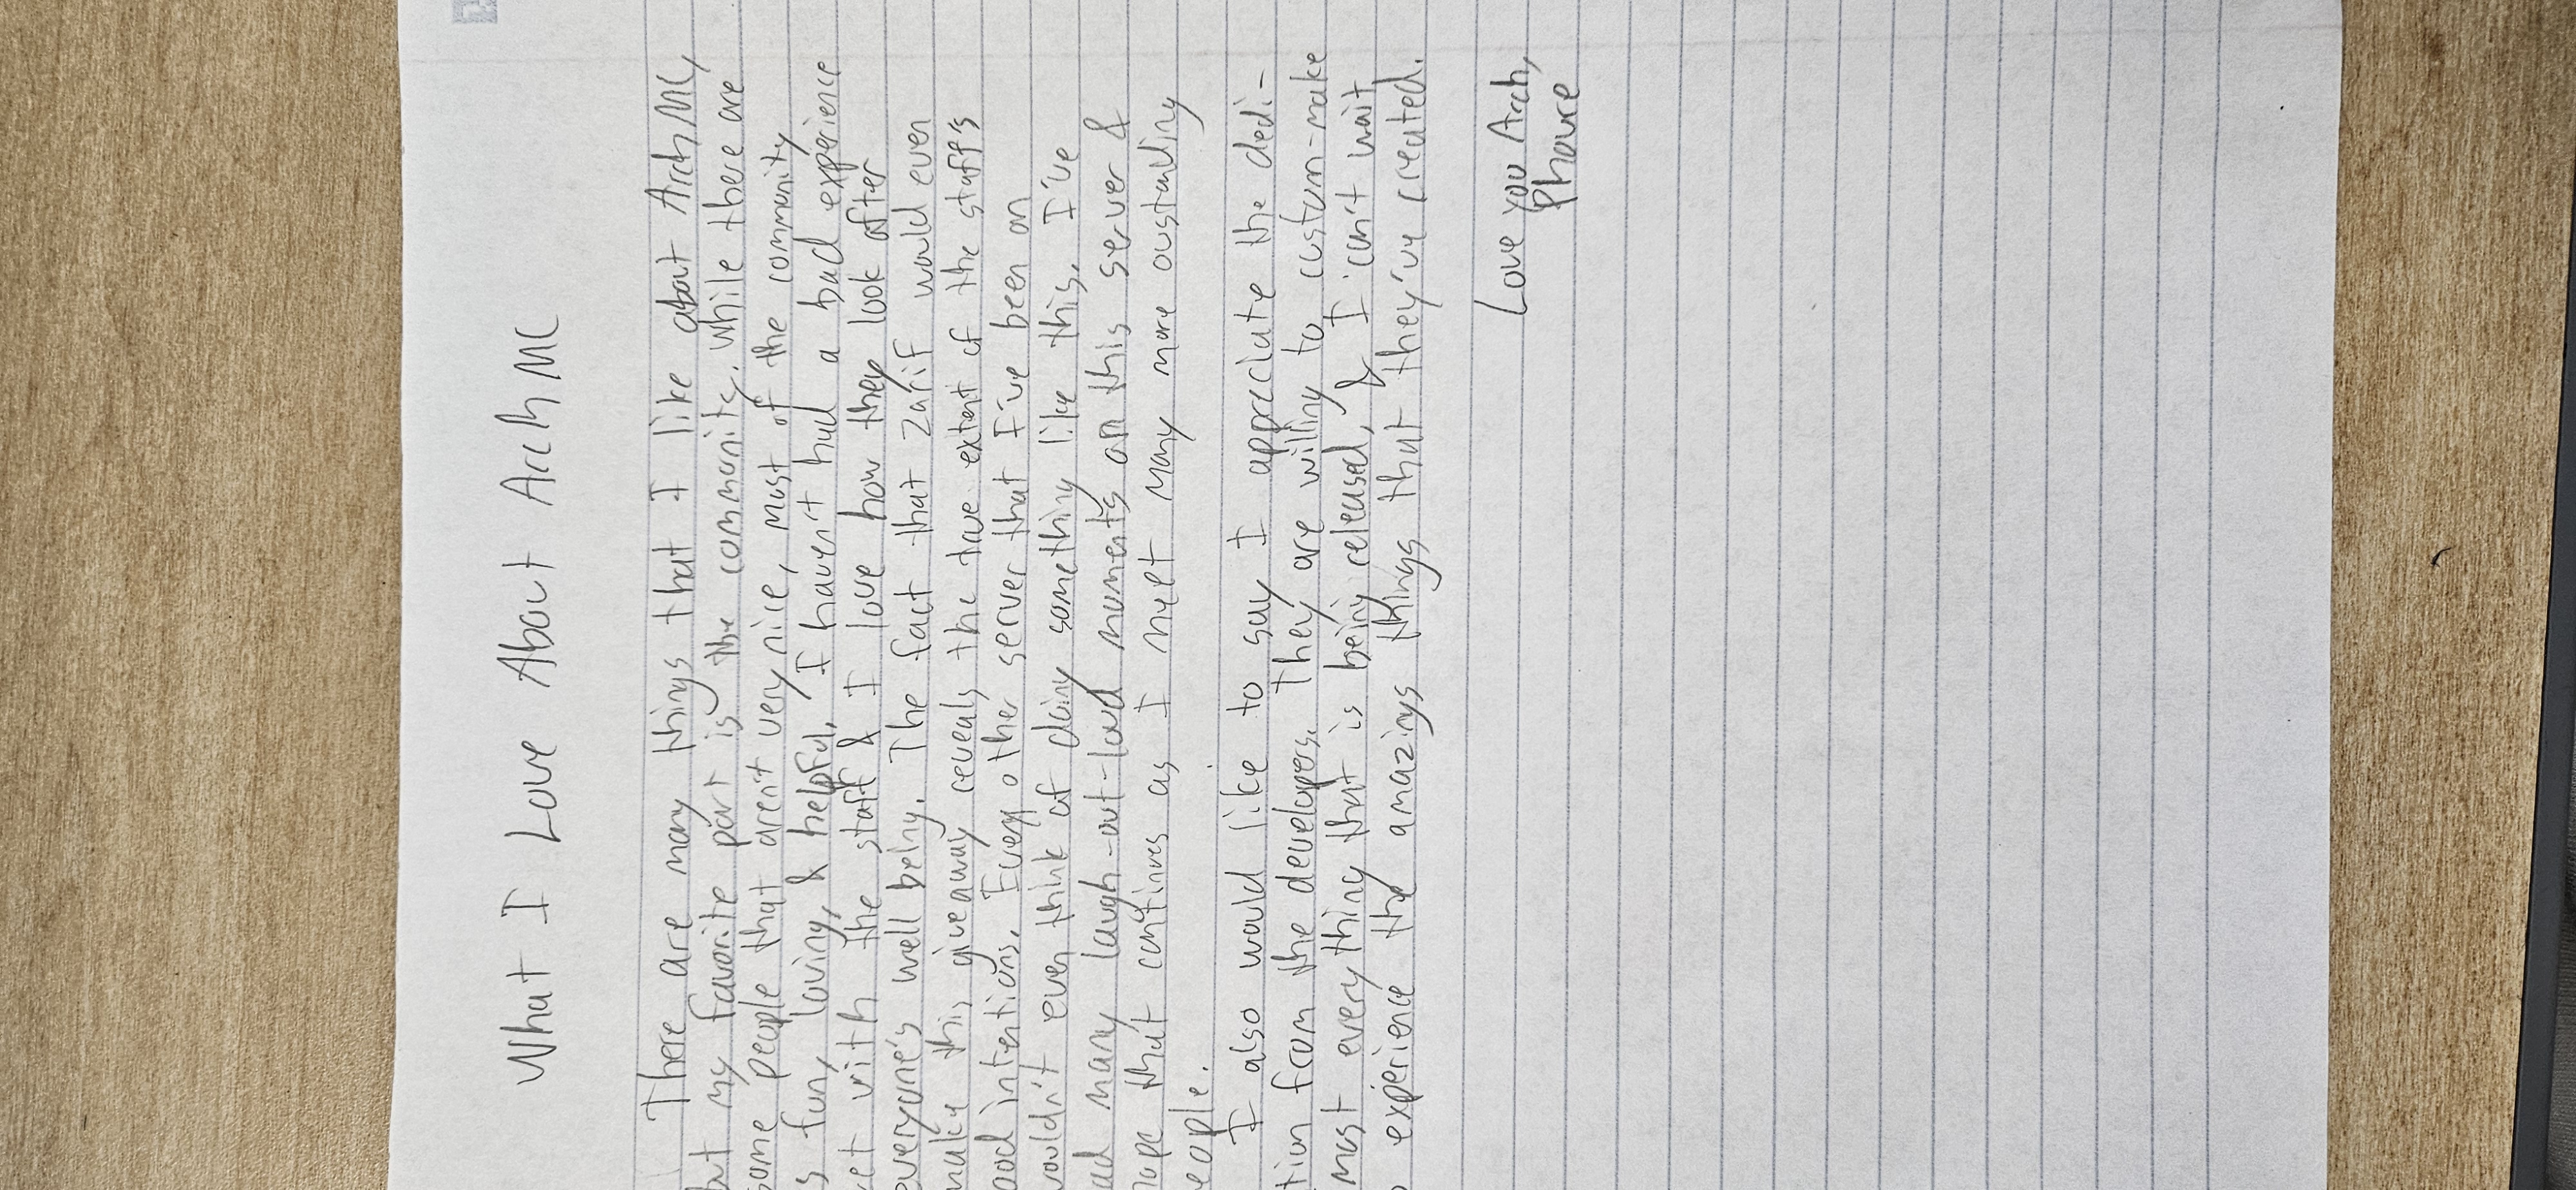 What I Love About Arch MC
There are many things that I like about Arch MC,
but my favorite part is the community. While there are
some people that aren't very nice, most of the community
s fun, loving, & helpful. I haven't had a bad experience
yet with the staff & I love how they look after
everyone's well being. The fact that Zarif would even
make this giveaway reveals the true extent of the staff's
ood intentions. Every other server that I've been on
wouldn't even think of doing something like this. I've
ad many laugh-out-loud moments on this server &
hope that continues as I meet many more oustanding
eople.
I also would like to say I appreciate the dedi-
tion from the developers. They are willing to custom-make
most everything that is being released, & I can't wait
experience the amazings things that they've created.
Love you Arch,
Phoure